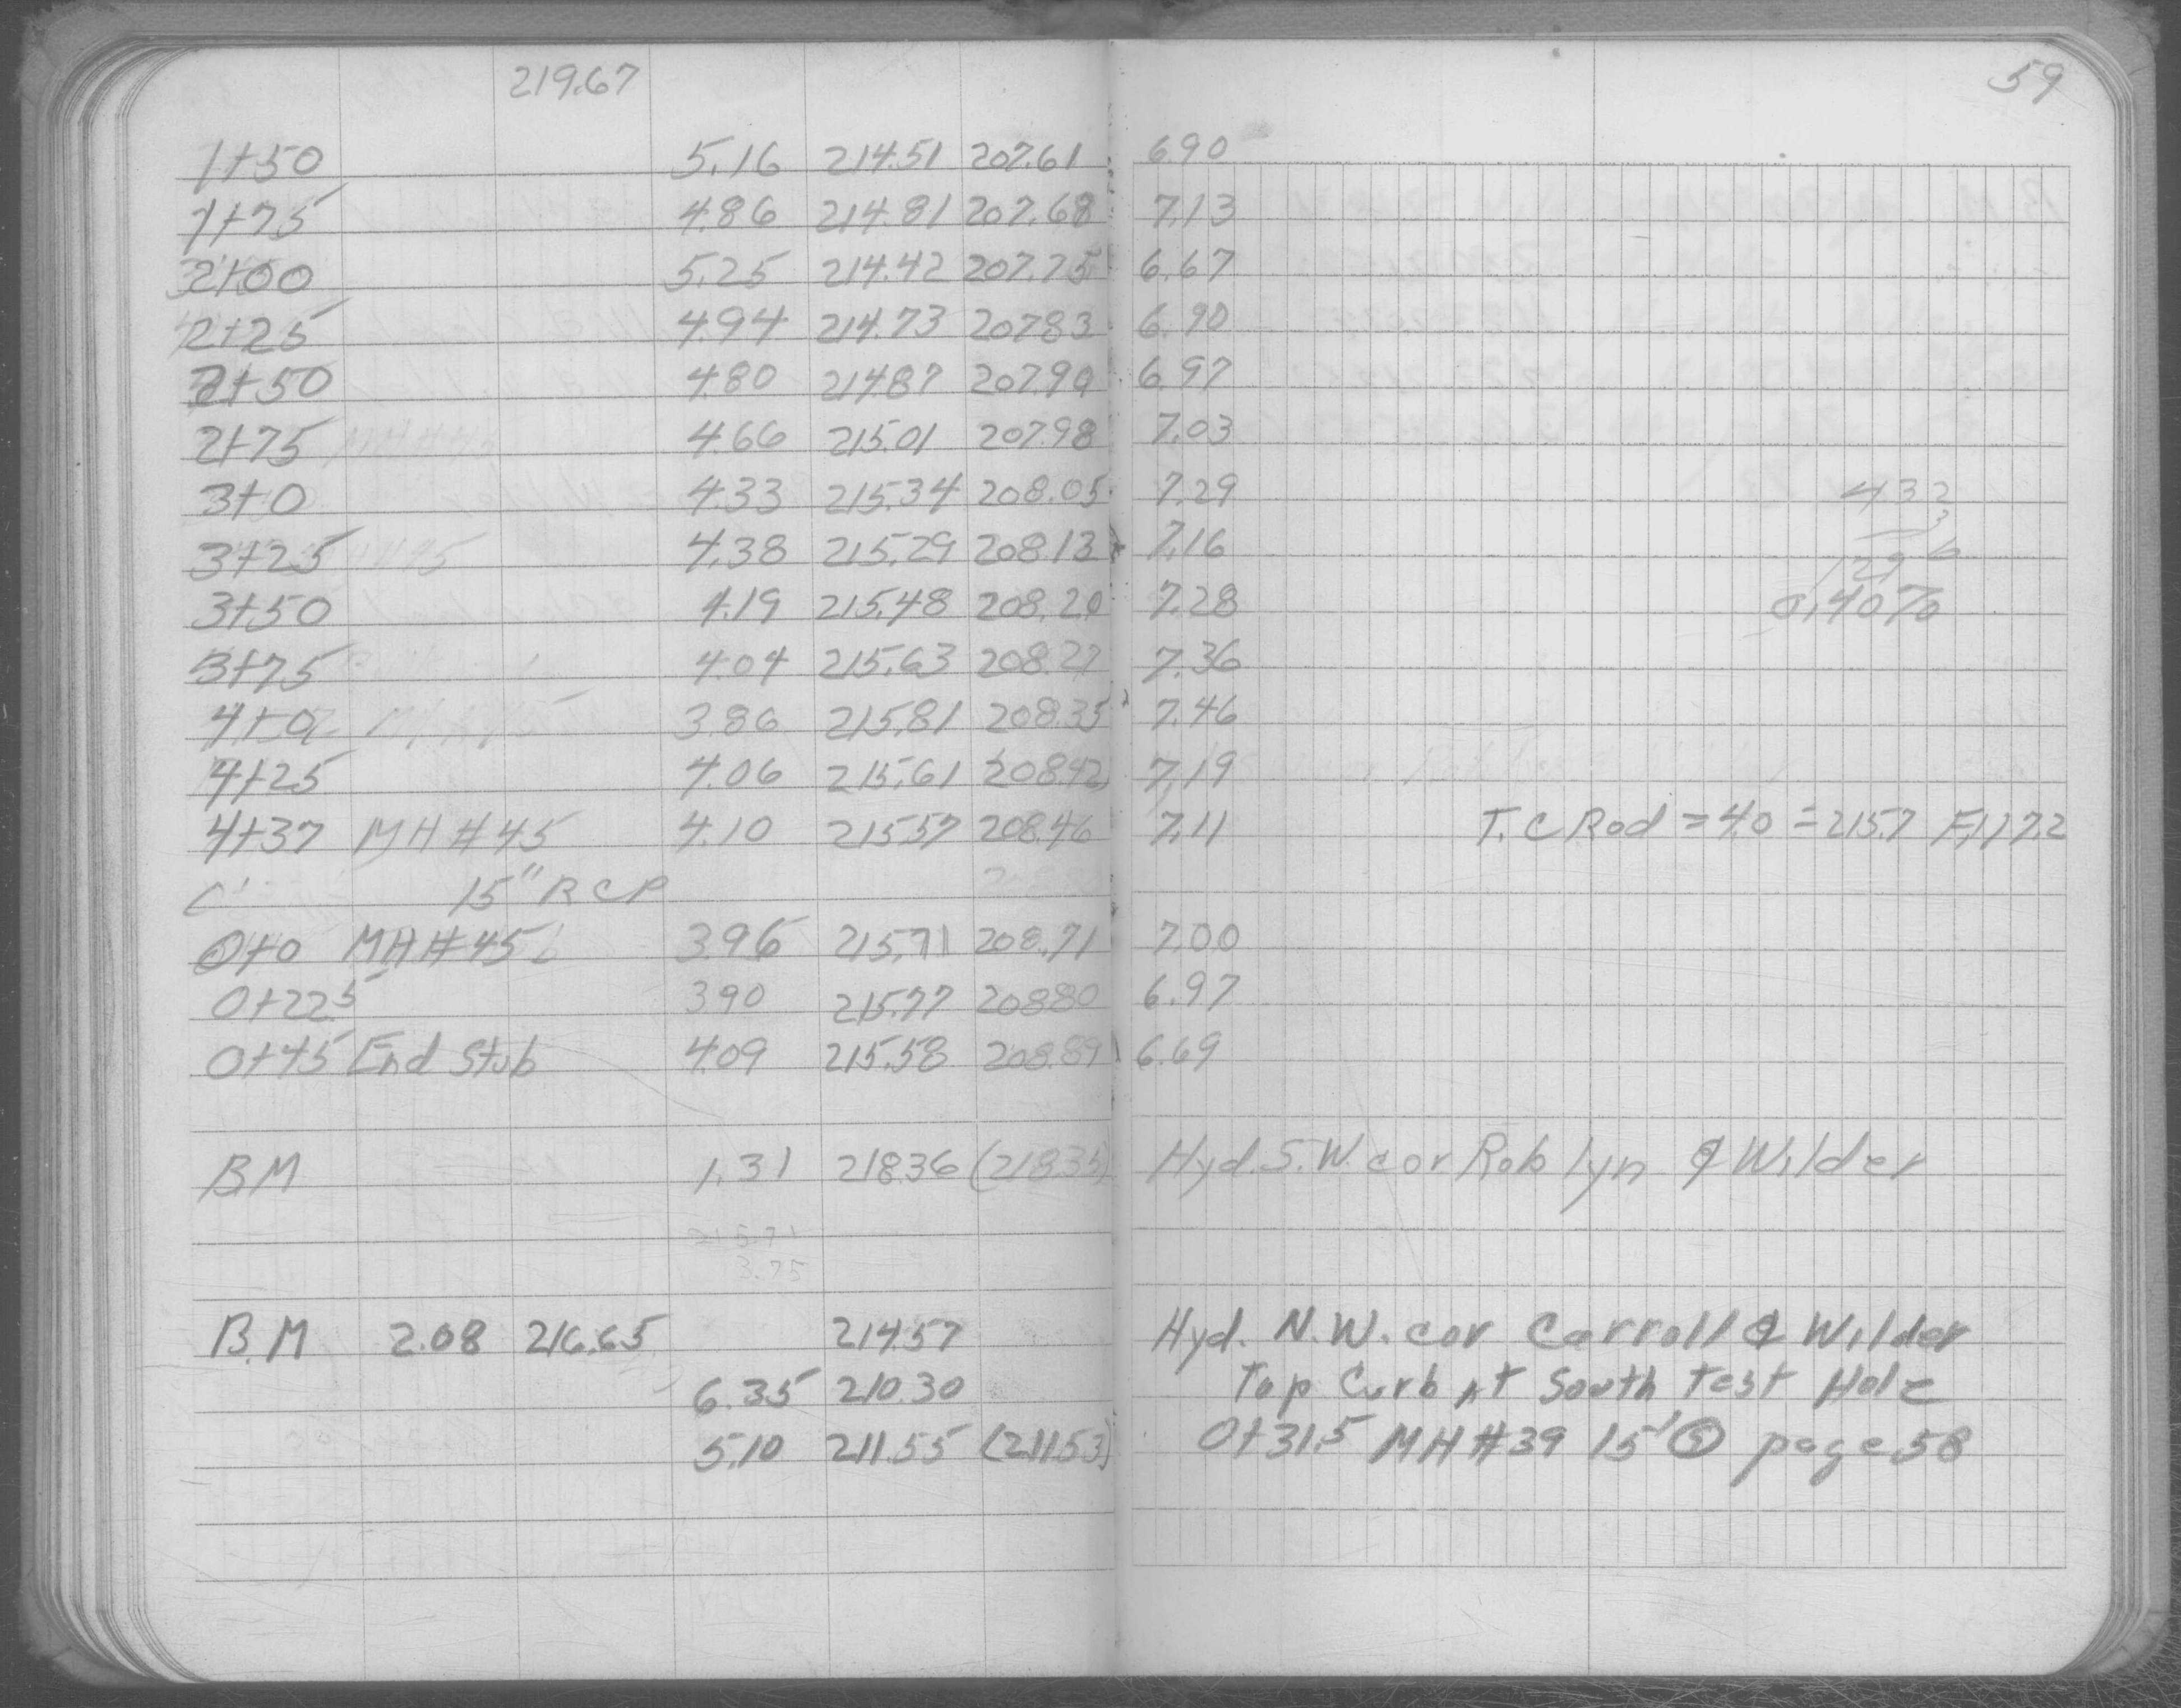 219.67 59
1+50 5.16 214.51 207.61 6.90
1+75 4.86 214.81 207.68 7.13
2+00 5.25 214.42 207.75 6.67
2+25 4.94 214.73 207.83 6.90
2+50 4.80 214.87 207.90 6.97
2+75 4.66 215.01 207.98 7.03
3+0 4.33 215.34 208.05 7.29
432
3+25 4.38 215.29 208.13 7.16
3
1296
3+50 4.19 215.48 208.20 7.28 0.40%
3+75 4.04 215.63 208.27 7.36
4+0 3.86 215.81 208.35 7.46
4+25 4.06 215.61 208.42 7.19
4+37 MH #45 4.10 215.57 208.46 7.11 T.C Rod = 4.0 = 215.7 Fill 7.2
15" RCP
0+0 MH #45 3.96 215.71 208.71 7.00
0+22.5 3.90 215.77 208.80 6.97
0+45 End Stub 4.09 215.58 208.89 6.69
B.M 1.31 218.36 (218.35) Hyd. S.W. cor Roblyn & Wilder
215.71
3.75
B.M 2.08 216.65 214.57 Hyd. N.W. cor Carroll & Wilder
6.35 210.30 Top Curb At South Test Hole
5.10 211.55 (211.53) 0+31.5 MH #39 15' Ⓢ page 58